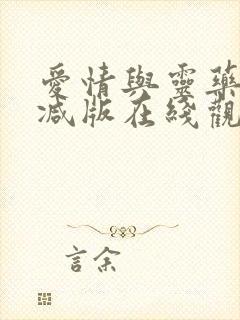 愛情與靈藥
減版在綫觀
言余